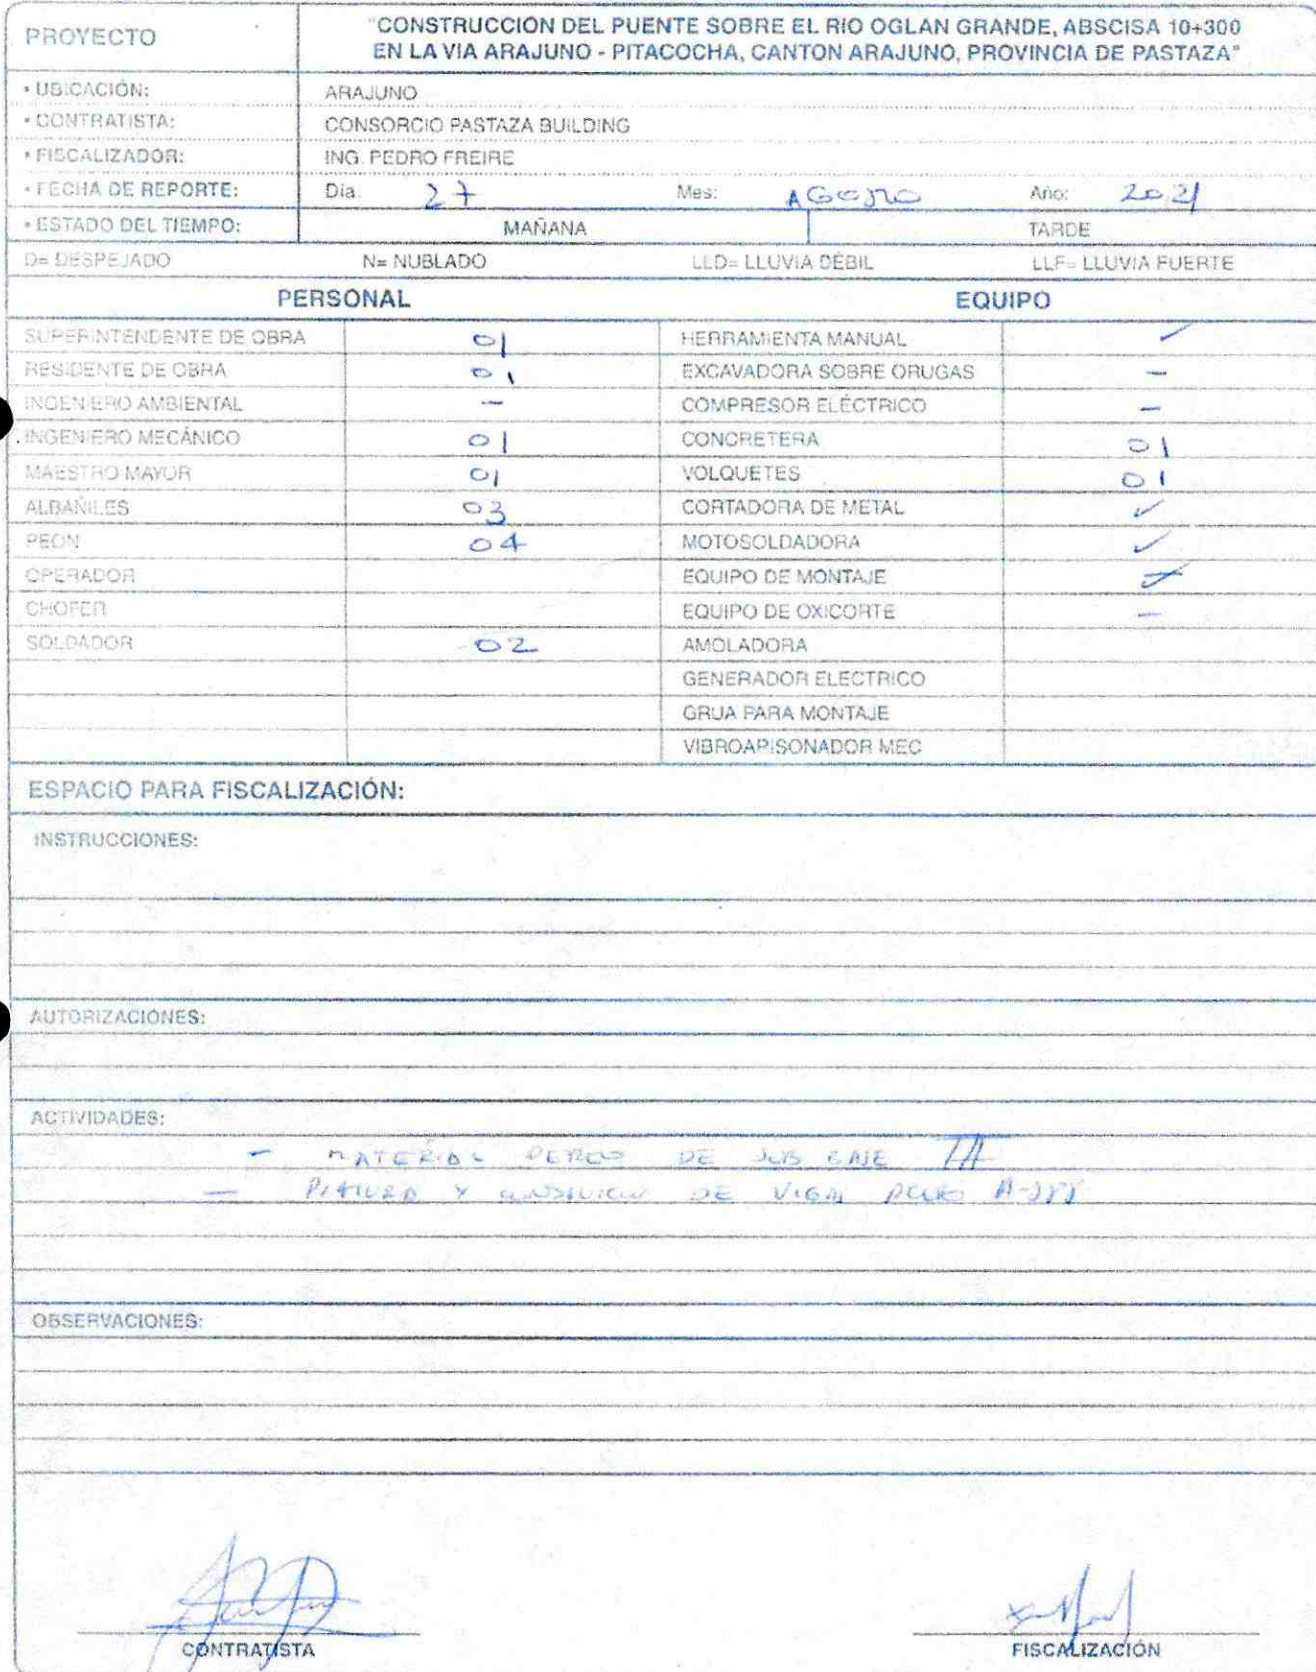 PROYECTO
"CONSTRUCCION DEL PUENTE SOBRE EL RIO OGLAN GRANDE, ABSCISA 10+300
EN LA VIA ARAJUNO - PITACOCHA, CANTON ARAJUNO, PROVINCIA DE PASTAZA"
• UBICACIÓN: ARAJUNO
• CONTRATISTA: CONSORCIO PASTAZA BUILDING
• FISCALIZADOR: ING. PEDRO FREIRE
• FECHA DE REPORTE: Día: 27 Mes: AGOSTO Año: 2021
• ESTADO DEL TIEMPO: MAÑANA TARDE
D= DESPEJADO N= NUBLADO LLD= LLUVIA DÉBIL LLF= LLUVIA FUERTE
PERSONAL EQUIPO
SUPERINTENDENTE DE OBRA 01 HERRAMIENTA MANUAL ✓
RESIDENTE DE OBRA 01 EXCAVADORA SOBRE ORUGAS -
INGENIERO AMBIENTAL - COMPRESOR ELÉCTRICO -
INGENIERO MECÁNICO 01 CONCRETERA 01
MAESTRO MAYOR 01 VOLQUETES 01
ALBAÑILES 03 CORTADORA DE METAL ✓
PEON 04 MOTOSOLDADORA ✓
OPERADOR EQUIPO DE MONTAJE
CHOFER EQUIPO DE OXICORTE -
SOLDADOR 02 AMOLADORA
GENERADOR ELECTRICO
GRUA PARA MONTAJE
VIBROAPISONADOR MEC
ESPACIO PARA FISCALIZACIÓN:
INSTRUCCIONES:
AUTORIZACIONES:
ACTIVIDADES:
- MATERIAL DE SUB BASE
- Y DE VIGA
OBSERVACIONES:
CONTRATISTA FISCALIZACIÓN